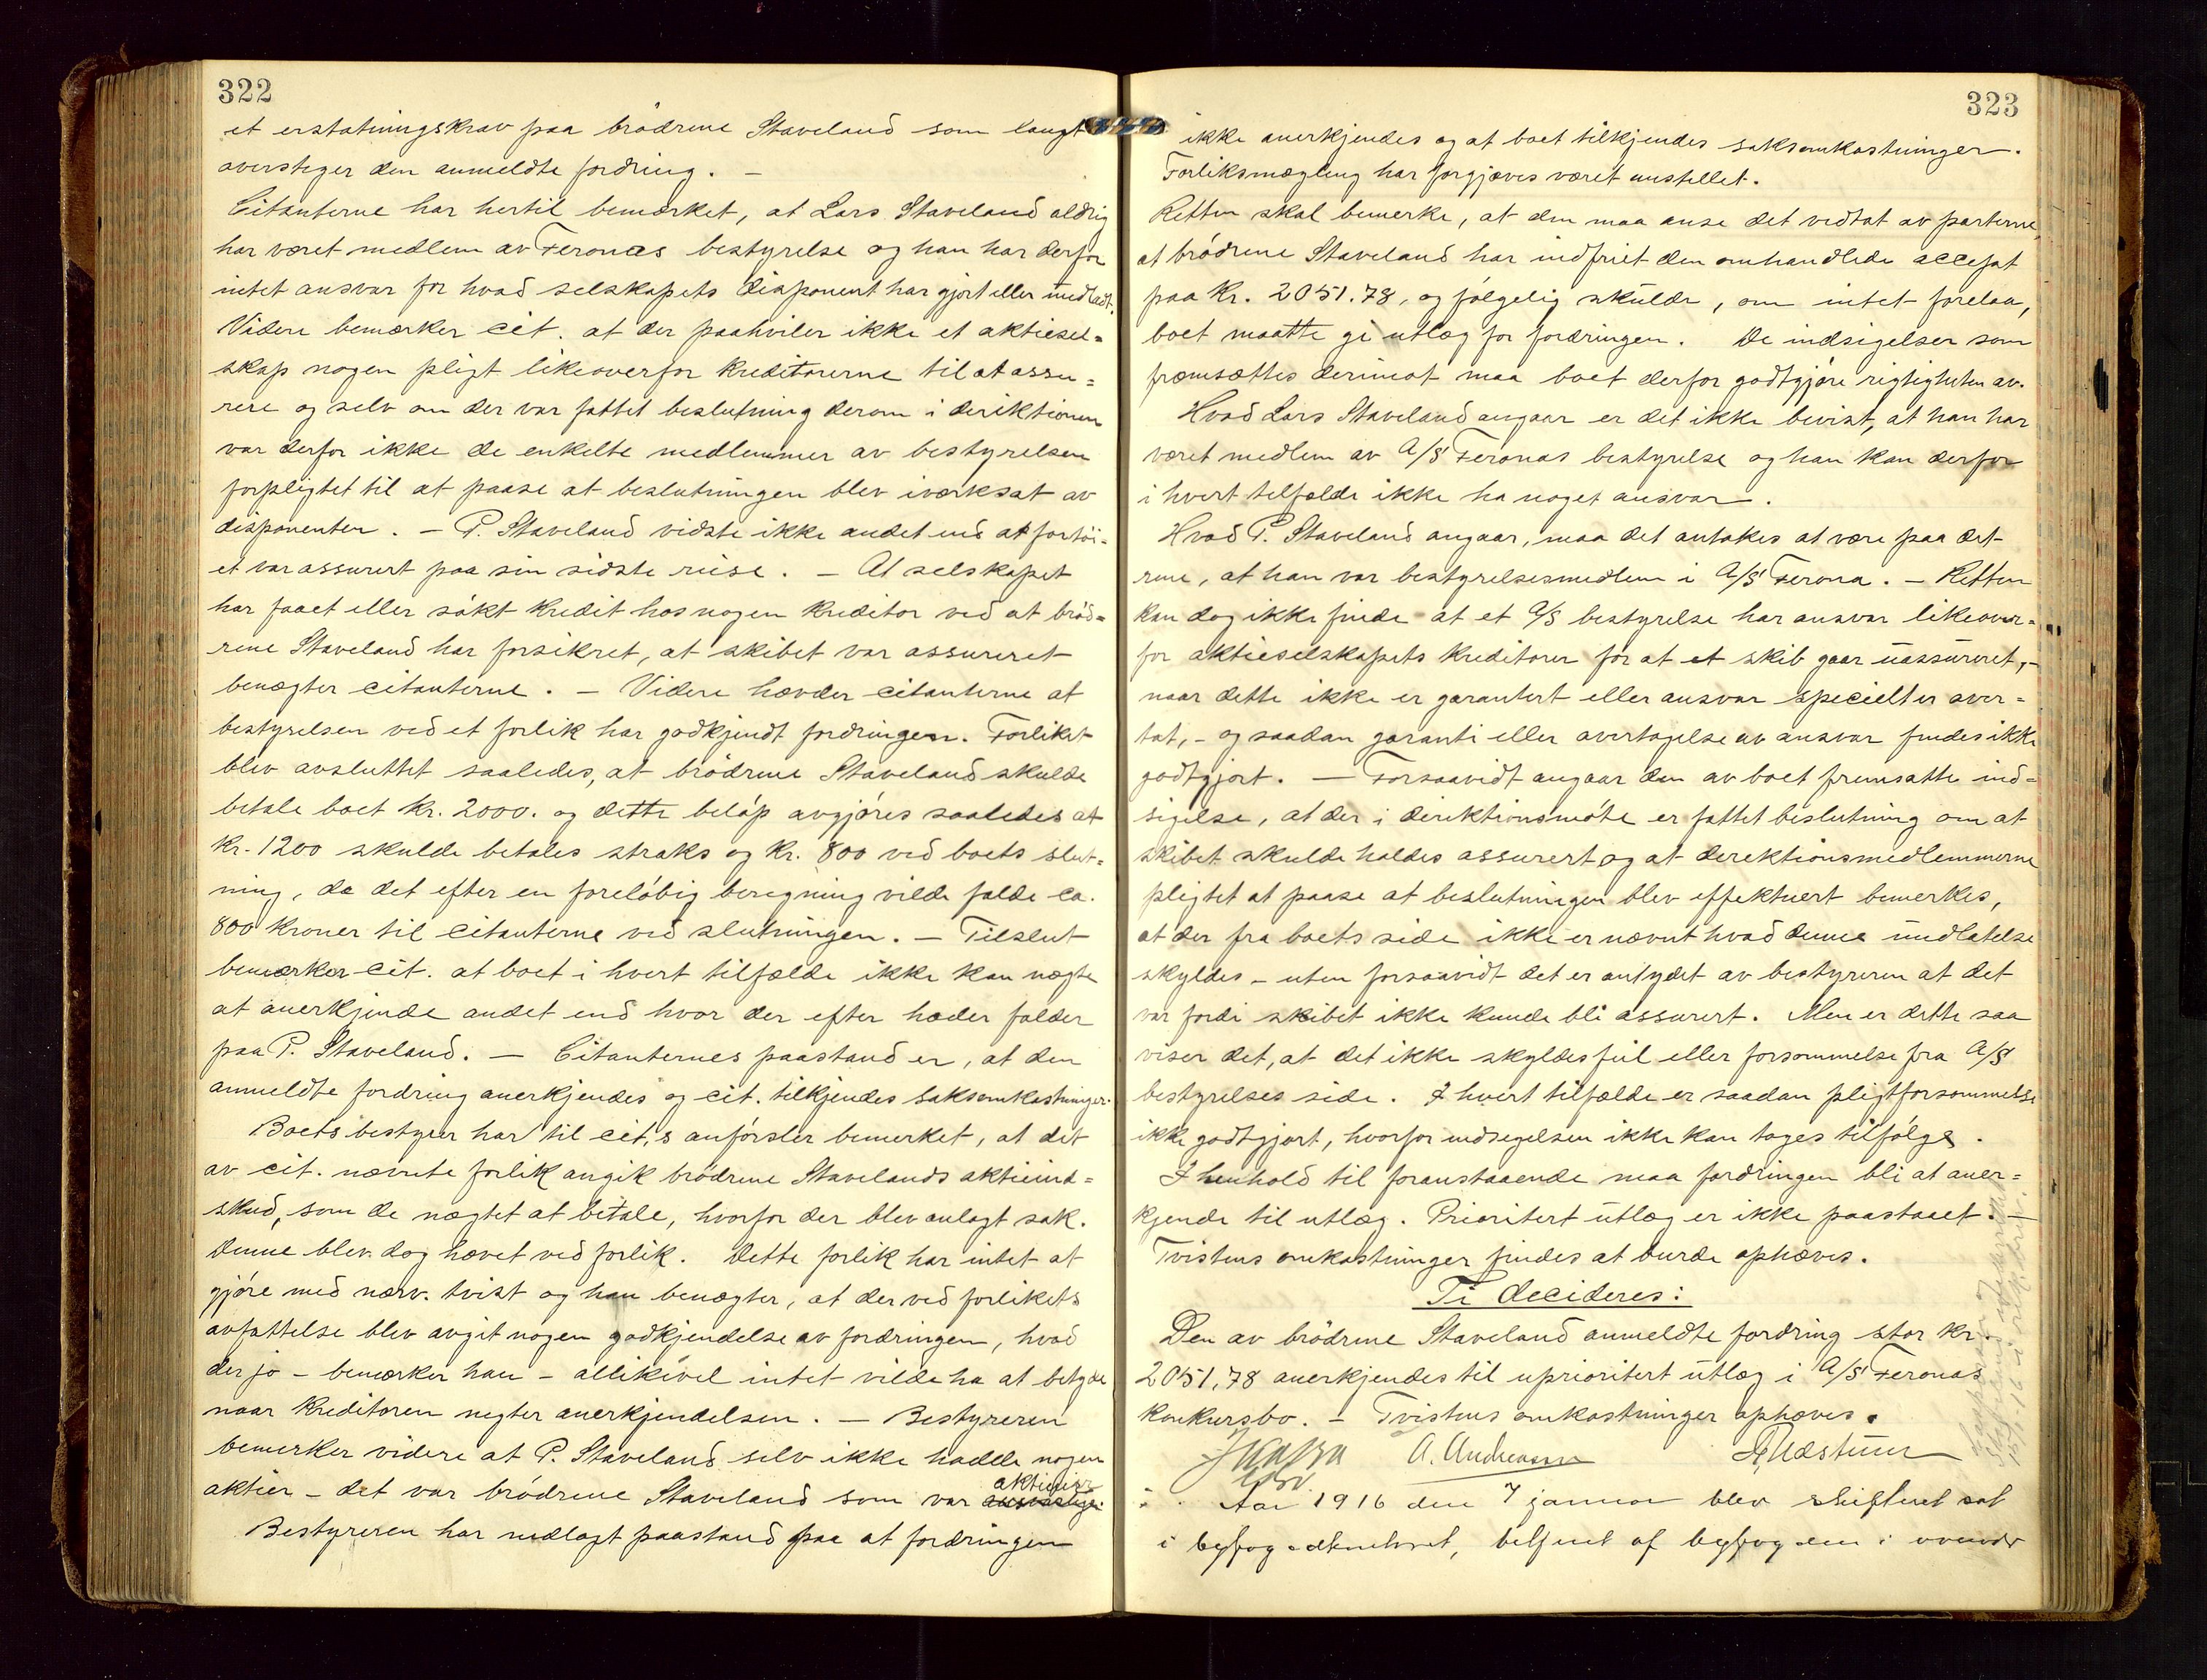 322
et erstatningskrav paa brödrene Staveland som langt
overstiger den anmeldte fordring. —
Citanterne har hertil bemærket, at Lars Staveland aldrig
har været medlem av Feronas bestyrelse og han har derfor
intet ansvar for hvad selskapets disponent har gjort eller undlatt.
Videre bemærker cit. at der paahviler ikke et aktiesel=
skap nogen pligt likeoverfor kreditorerne til at assu=
rere og selv om der var fattet beslutning derom i direktionen
var derfor ikke de enkelte medlemmer av bestyrelsen
forpligtet til at paase at beslutningen blev iverksat av
disponenten. — P. Staveland vidste ikke andet end at fartöi=
et var assurert paa sin sidste reise. — At selskapet
har faaet eller sökt kredit hos nogen kreditor ved at bröd=
rene Staveland har forsikret, at skibet var assureret
benægter citanterne. — Videre hævder citanterne at
bestyrelsen ved et forlik har godkjendt fordringen. Forliket
blev avsluttet saaledes, at brödrene Staveland skulde
betale boet kr. 2000. og dette belöp avgjöres saaledes at
kr. 1200 skulde betales straks og kr. 800 ved boets slut=
ning, da det efter en foreløbig beregning vilde falde ca.
800 kroner til citanterne ved slutningen. — Tilslut
bemærker cit. at boet i hvert tilfælde ikke kan nægte
at anerkjende andet end hvor der efter hoder falder
paa P. Staveland. — Citanternes paastand er, at den
anmeldte fordring anerkjendes og cit. tilkjendes saksomkostninger.
Boets bestyrer har til cit,s anförsler bemerket, at det
av cit. nævnte forlik angik brödrene Stavelands aktieind=
skud, som de nægtet at betale, hvorfor der blev anlagt sak.
Denne blev dog hævet ved forlik. Dette forlik har intet at
gjöre med nærv. tvist og han benægter, at der ved forlikets
avfattelse blev avgit nogen godkjendelse av fordringen, hvad
der jo — bemærker han — allikevel intet vilde ha at betyde
naar kreditoren negter anerkjendelsen. — Bestyreren
bemerker videre at P. Staveland selv ikke hadde nogen
aktier — det var brödrene Staveland som var aktieeier
Bestyreren har nedlagt paastand paa at fordringen
323
ikke anerkjendes og at boet tilkjendes saksomkostninger.
Forliksmægling har forgjæves været anstillet.
Retten skal bemerke, at den maa anse det vedtat av parterne,
at brödrene Staveland har indfriet den omhandlede accept
paa kr. 2051.78, og følgelig skulde, om intet forelaa,
boet maatte gi utlæg for fordringen. De indsigelser som
fræmsættes derimot maa boet derfor godtgjöre rigtigheten av.
Hvad Lars Staveland angaar er det ikke bevist, at han har
været medlem av A/S Feronas bestyrelse og han kan derfor
i hvert tilfælde ikke ha noget ansvar.
Hvad P. Staveland angaar, maa det antakes at være paa det
rene, at han var bestyrelsesmedlem i A/S Ferona. — Retten
kan dog ikke finde at et A/S bestyrelse har ansvar likeover=
for aktieselskapets kreditorer for at et skib gaar uassureret,—
naar dette ikke er garantert eller ansvar specielt er over=
tat, — og saadan garanti eller overtagelse av ansvar findes ikke
godtgjort. — Forsaavidt angaar den av boet fremsatte ind=
sigelse, at der i direktionsmöte er fattet beslutning om at
skibet skulde holdes assurert og at derektionsmedlemmerne
pligtet at paase at beslutningen blev effektuert bemerkes,
at der fra boets side ikke er nævnt hvad denne undlatelse
skyldes — uten forsaavidt det er antydet av bestyreren at det
var fordi skibet ikke kunde bli assurert. Men er dette saa
viser det, at det ikke skyldes feil eller forsommelse fra A/S
bestyrelses side. I hvert tilfælde er saadan pligtforsommelse
ikke godtgjort, hvorfor indsigelsen ikke kan tages tilfølge.
I henhold til foranstaaende maa fordringen bli at aner=
kjende til utlæg. Prioritert utlæg er ikke paastaaet. —
Tvistens omkostninger findes at burde ophæves.
Ti decideres:
Den av brödrene Staveland anmeldte fordring stor kr.
2051,78 anerkjendes til uprioritert utlæg i A/S Feronas
konkursbo. — Tvistens omkostninger ophæves.
A. Andreassen
Aar 1916 den 7 januar blev skifteret sat
i byfogedkontoret, betjent af byfogden i overvær